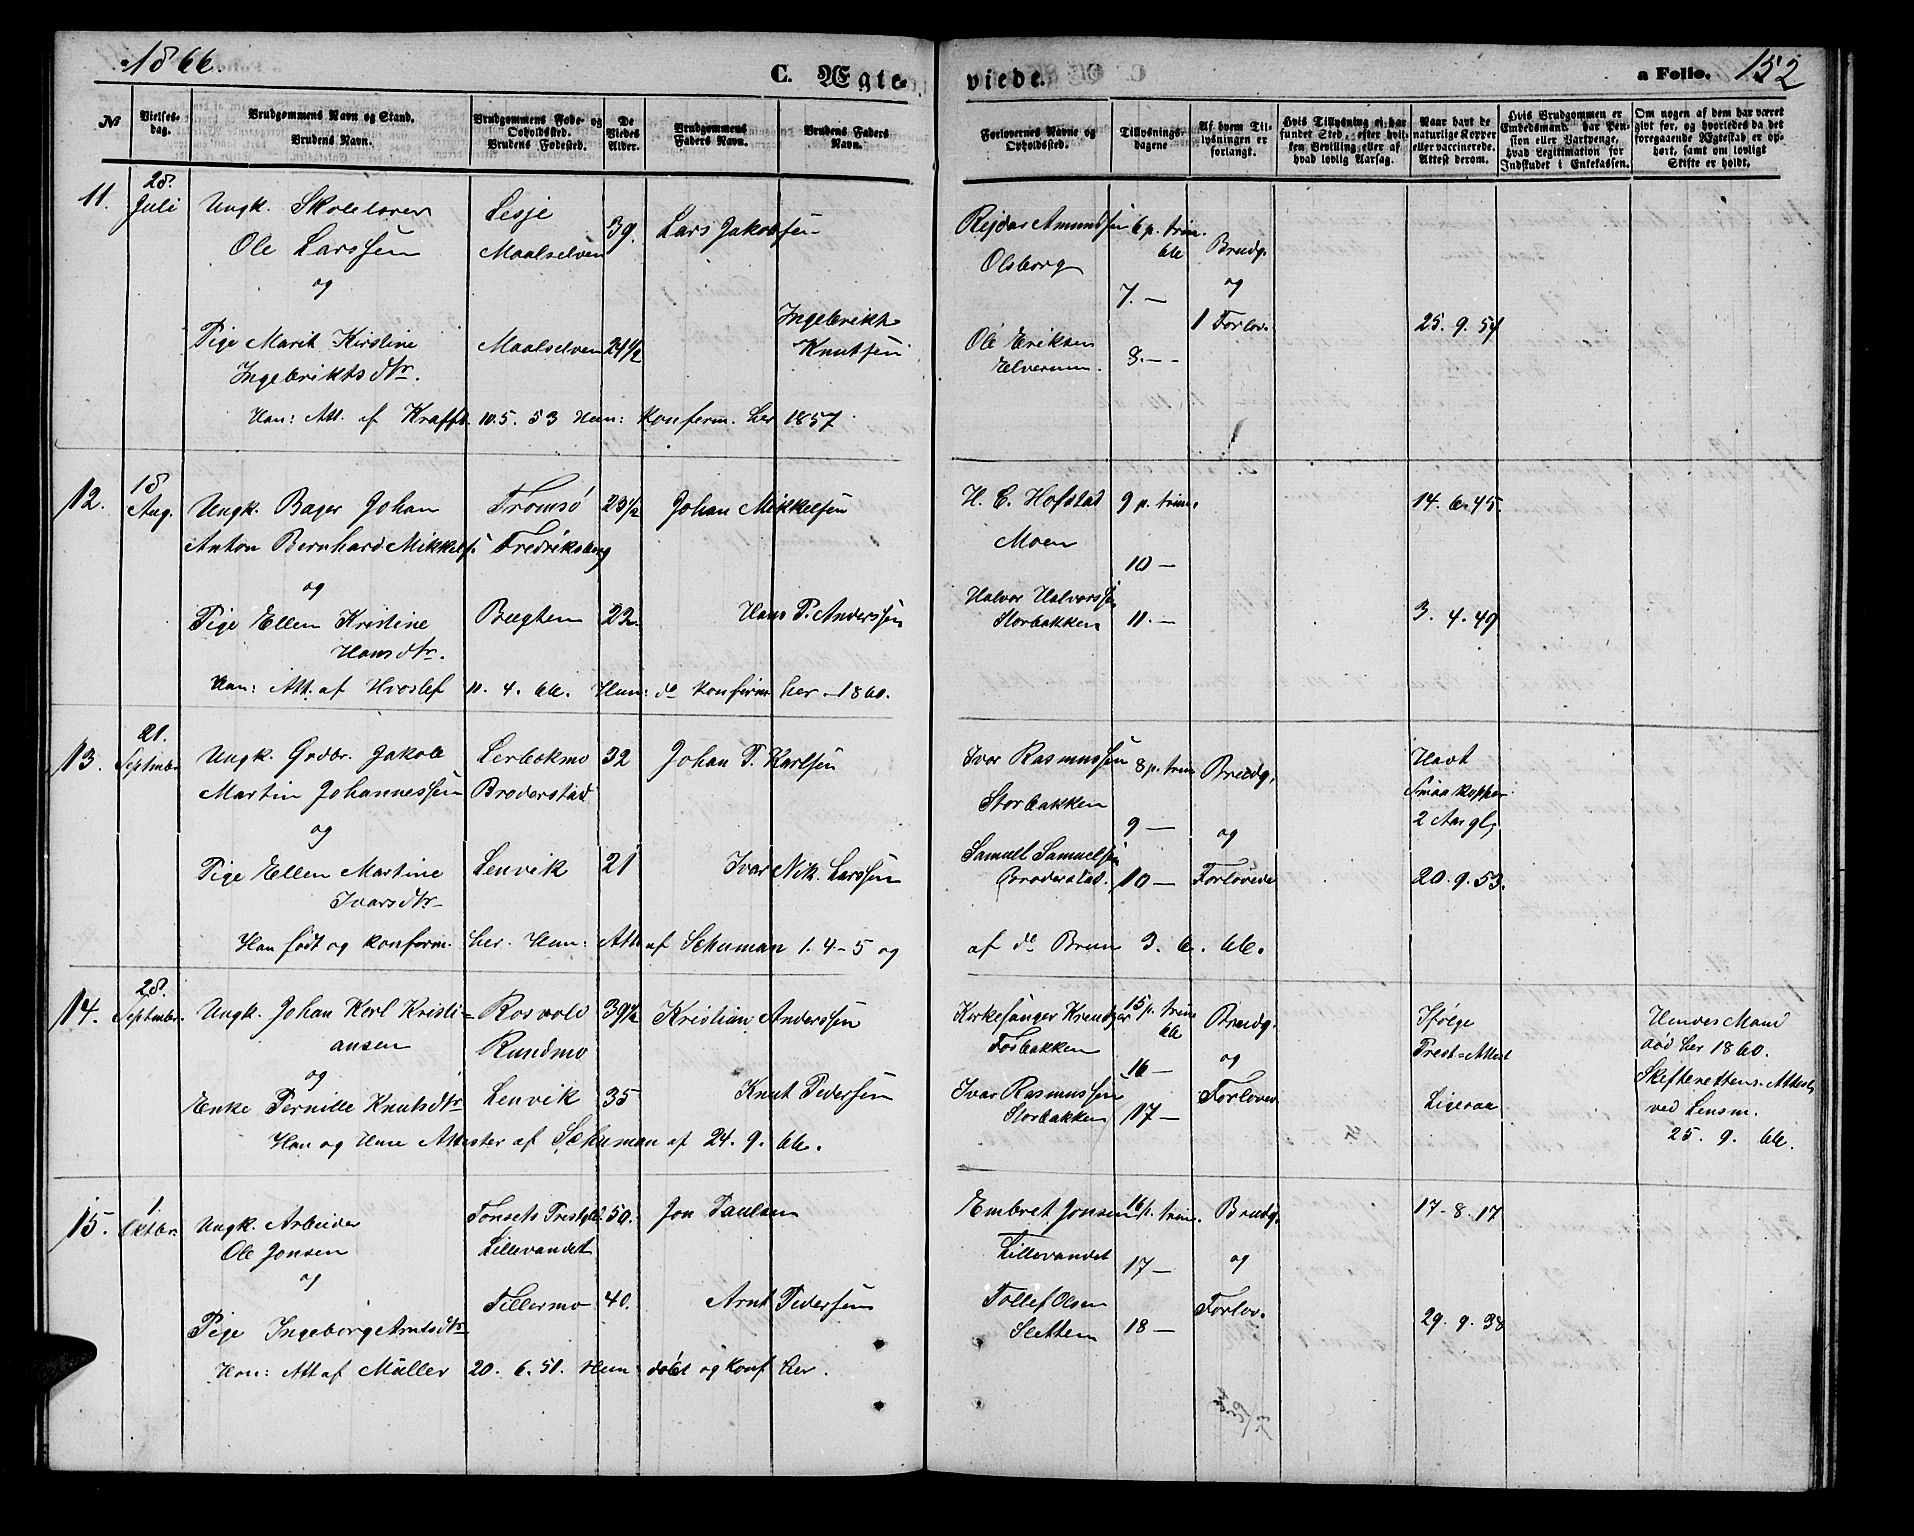 1866.
C. Ægteviede.
a Folio. 152
№
Vielses-dag.
Brudgommens Navn og Stand.
Brudens Navn.
Brudgommens Føde- og Opholdssted.
Brudens Fødested.
De Viedes Alder.
Brudgommens Faders Navn.
Brudens Faders Navn.
Forlovernes Navne og Opholdssted.
Tillysnings-dagene
Af hvem Tillysningen er forlangt.
Hvis Tillysning ei har fundet Sted, efter hvilken Bevilling eller af hvad lovlig Aarsag.
Naar havt de naturlige Kopper eller vaccinerede. Attest derom.
Hvis Brudgommen er Embedsmand, har Pension eller Vartpenge, hvad Legitimation for Indskudet i Enkekassen.
Om nogen af dem har været givt før, og hvorledes da det foregaaende Ægteskab er ophørt, samt om lovligt Skifte er holdt.
11. 28. Juli
Ungk. Skolelærer Ole Larssen
Lesje Maalselven 39. Lars Jakobsen
og
Pige Marit Kirstine Ingebriktsdtr.
Maalselven 24 1/2 Ingebrikt Knutsen
Reidar Amundsen Olsborg
6 p. trin. 66
7. —
8. —
Brudg. og 1 Forlov.
Ole Eriksen Elverum.
25. 9. 54
Han: Att. af Krafft. 10. 5. 53 Hun: konferm. her 1857.
12. 18 Aug.
Ungk. Bager Johan Anton Bernhard Mikkels.
Tromsø Fredriksberg 23 1/2 Johan Mikkelsen
og
Pige Ellen Kristine Hansdtr.
22. Hans P. Anderssen
H. C. Hofstad Moen
9 p. trin.
10 —
11. —
14. 6. 45.
Halvor Halvorssen Storbakken
3. 4. 49
Han: Att. af Hvoslef 11. 4. 66. Hun: do konferm her 1860.
13. 21. Septmbr.
Ungk. Grdbr. Jakob Martin Johannessen
Lerbækmo Broderstad 32 Johan P. Karlsen
og
Pige Ellen Martine Ivarsdtr
Lenvik 21 Ivar Nik. Larssen
Ivar Rasmussen Storbakken
8 p. trin
9 —
10 —
Brudg. og Forlovede
Havt Smaakopper 2 Aar gl.
Samuel Samuelsen Broderstad.
20. 9. 53.
Han født og konferm. her. Hun: Att af Schuman 1. 4 - 5 og af do Brun 3. 6. 66.
14. 28. Septmbr.
Ungk. Johan Karl Kristiansen
Rosvold Rundmo 39 1/2 Kristian Anderssen
og
Enke Pernille Knutsdtr
Lenvik 35 Knut Pedersen
Kirkesanger Fosbakken
15 p. trin 66
16 —
17 —
Brudg. og Forloved
Ifølge Prest-Attest
Ivar Rasmussen Storbakken
Ligesaa
Hendes Mand død her 1860.
Skifterettens Attest ved Lensm. 25. 9. 66.
Han og Hun Attester af Schuman af 24. 9. 66.
15. 1 Oktbr.
Ungk. Arbeider Ole Jonsen
Tonsets Prestgld. Lillevandet 50. Jon Paulsen
og
Pige Ingeborg Arntsdtr
Fillermo 40. Arnt Pedersen
Embret Jonsen Lillevandet
16 p. trin.
17 —
18 —
Brudg. og Forlov.
17 - 8. 17
Tollef Olsen Sletten
29. 9. 38
Han: Att af Müller 20. 6. 51. Hun: døbt og konf her.